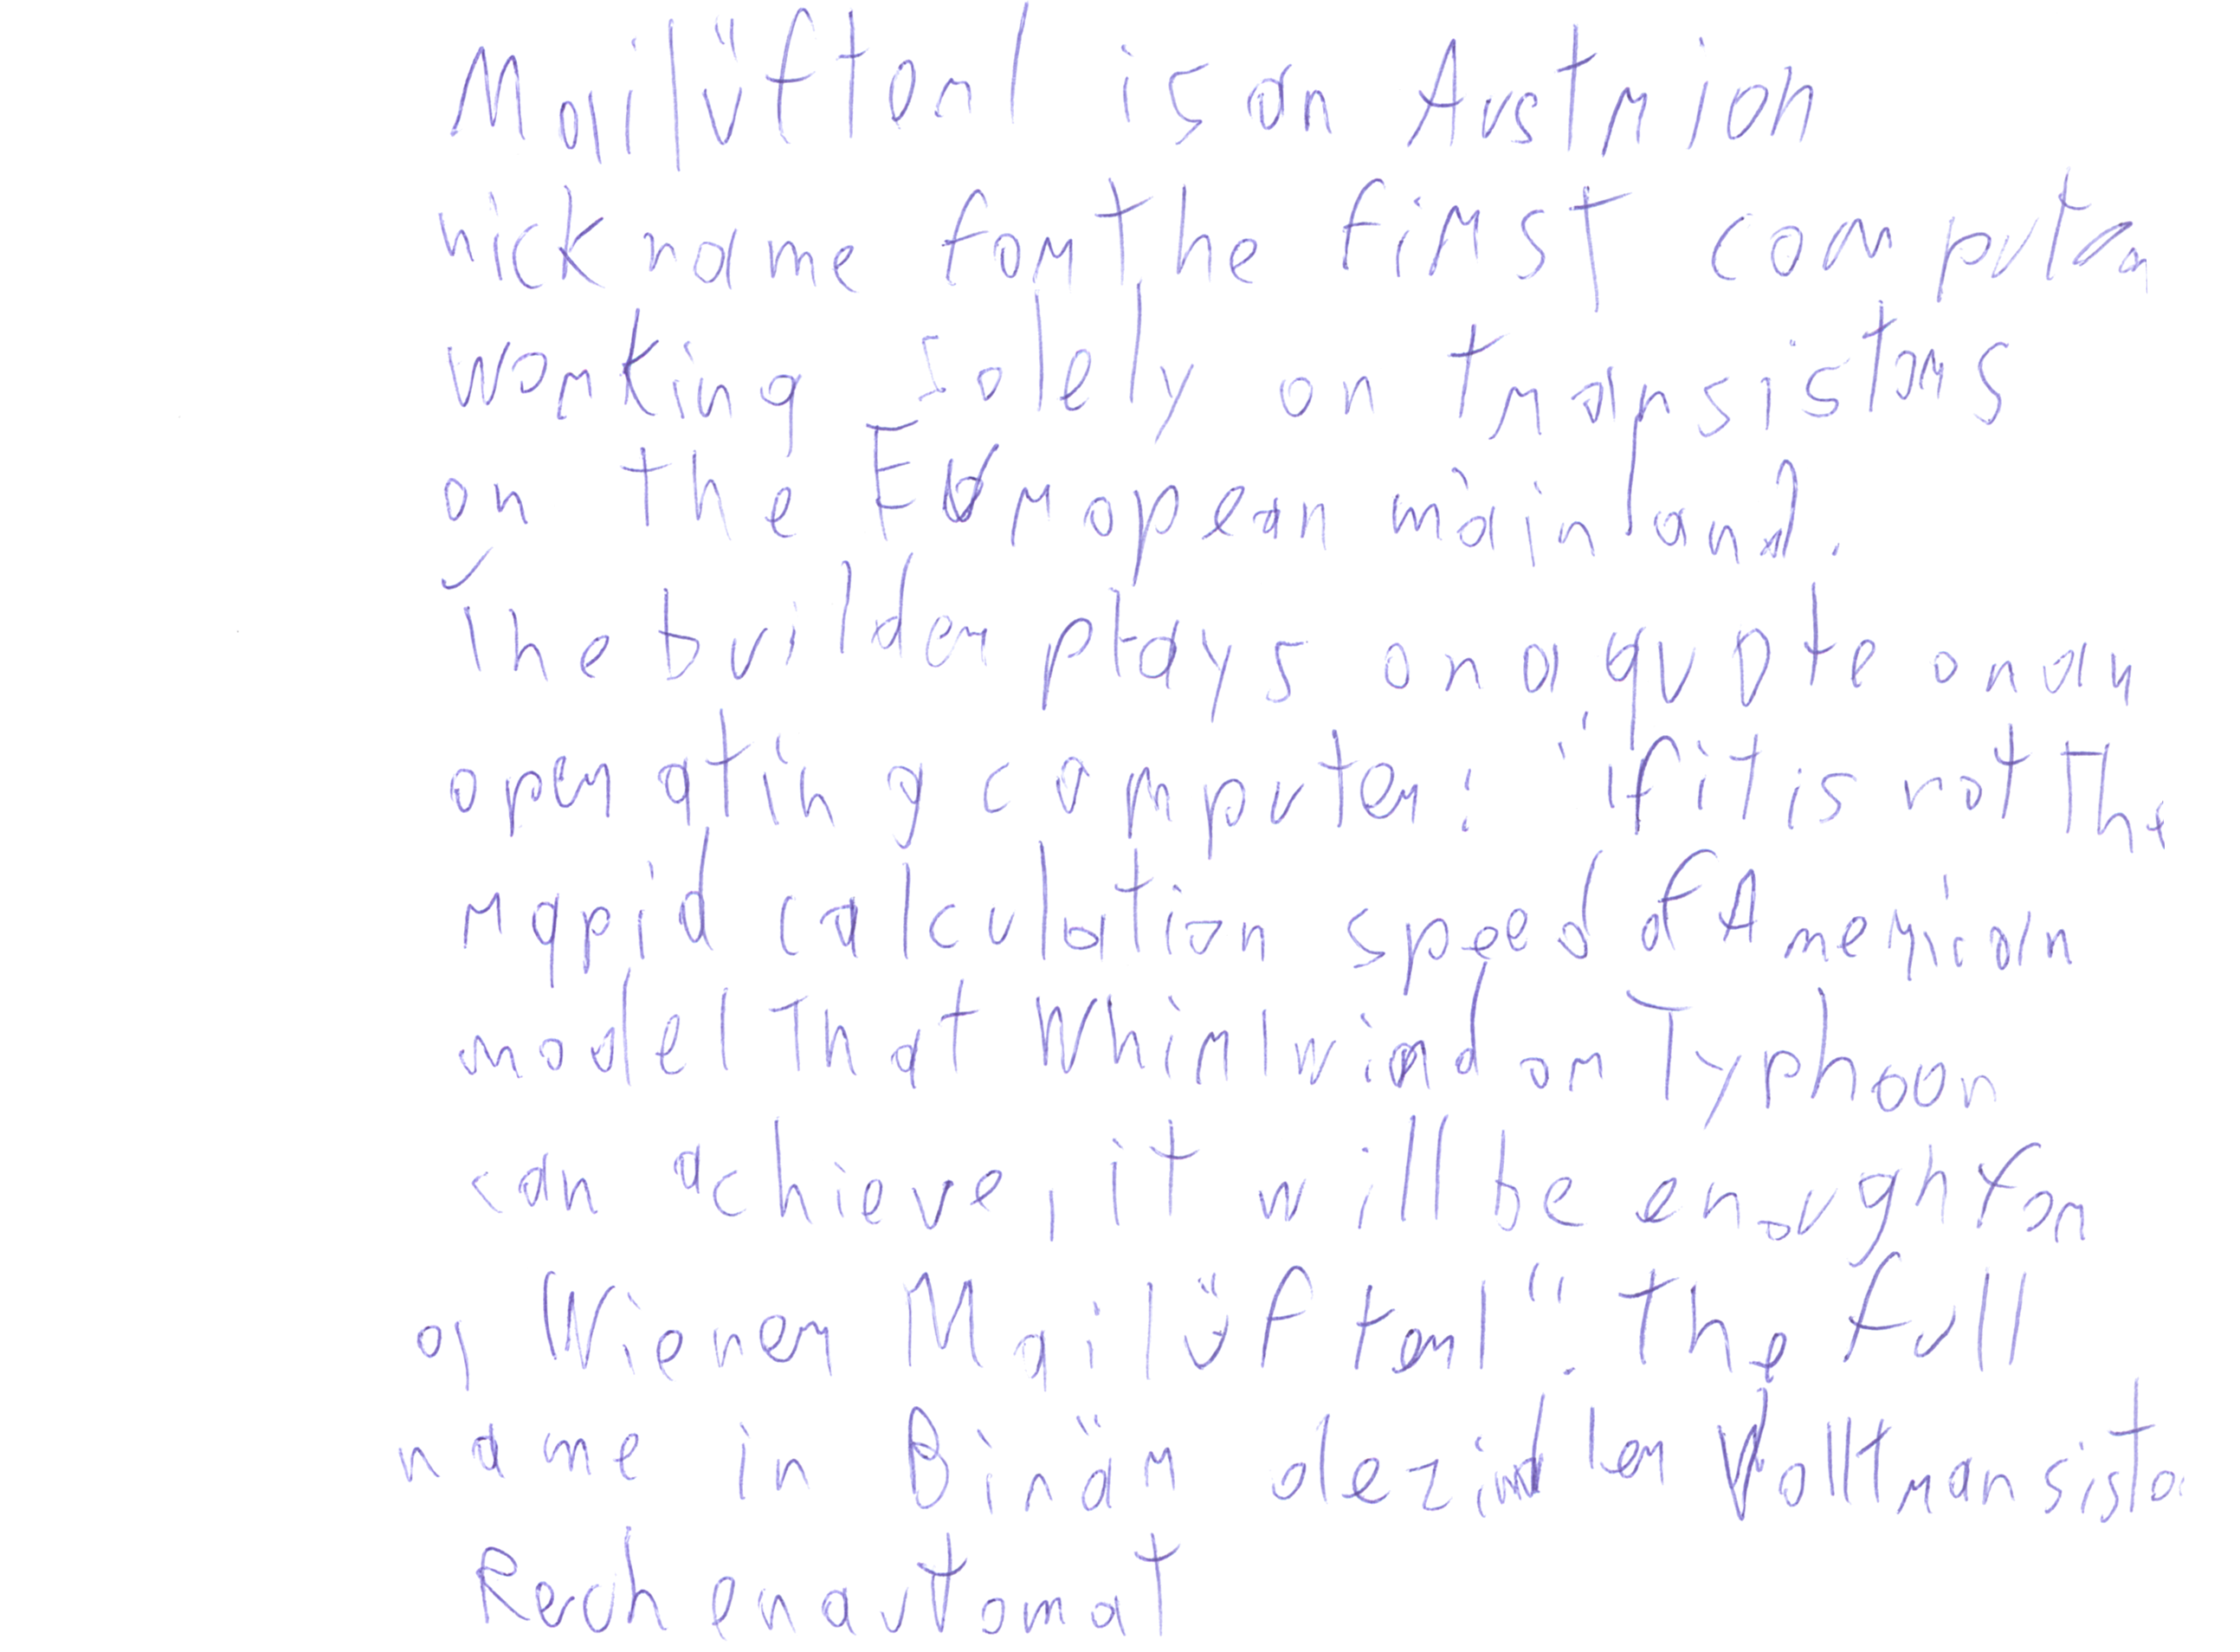 Mailüfterl is an Austrian
nickname for the first computer
working solely on transistors
on the European mainland.
The builder plays on a quote on an
operating computer: "if it is not the
rapid calculation speed of American
model that Whirlwind or Typhoon
can achieve, it will be enough for
a Wiener Mailüfterl". The full
name in Binär dezimaler Volltransisto
Rechenautomat